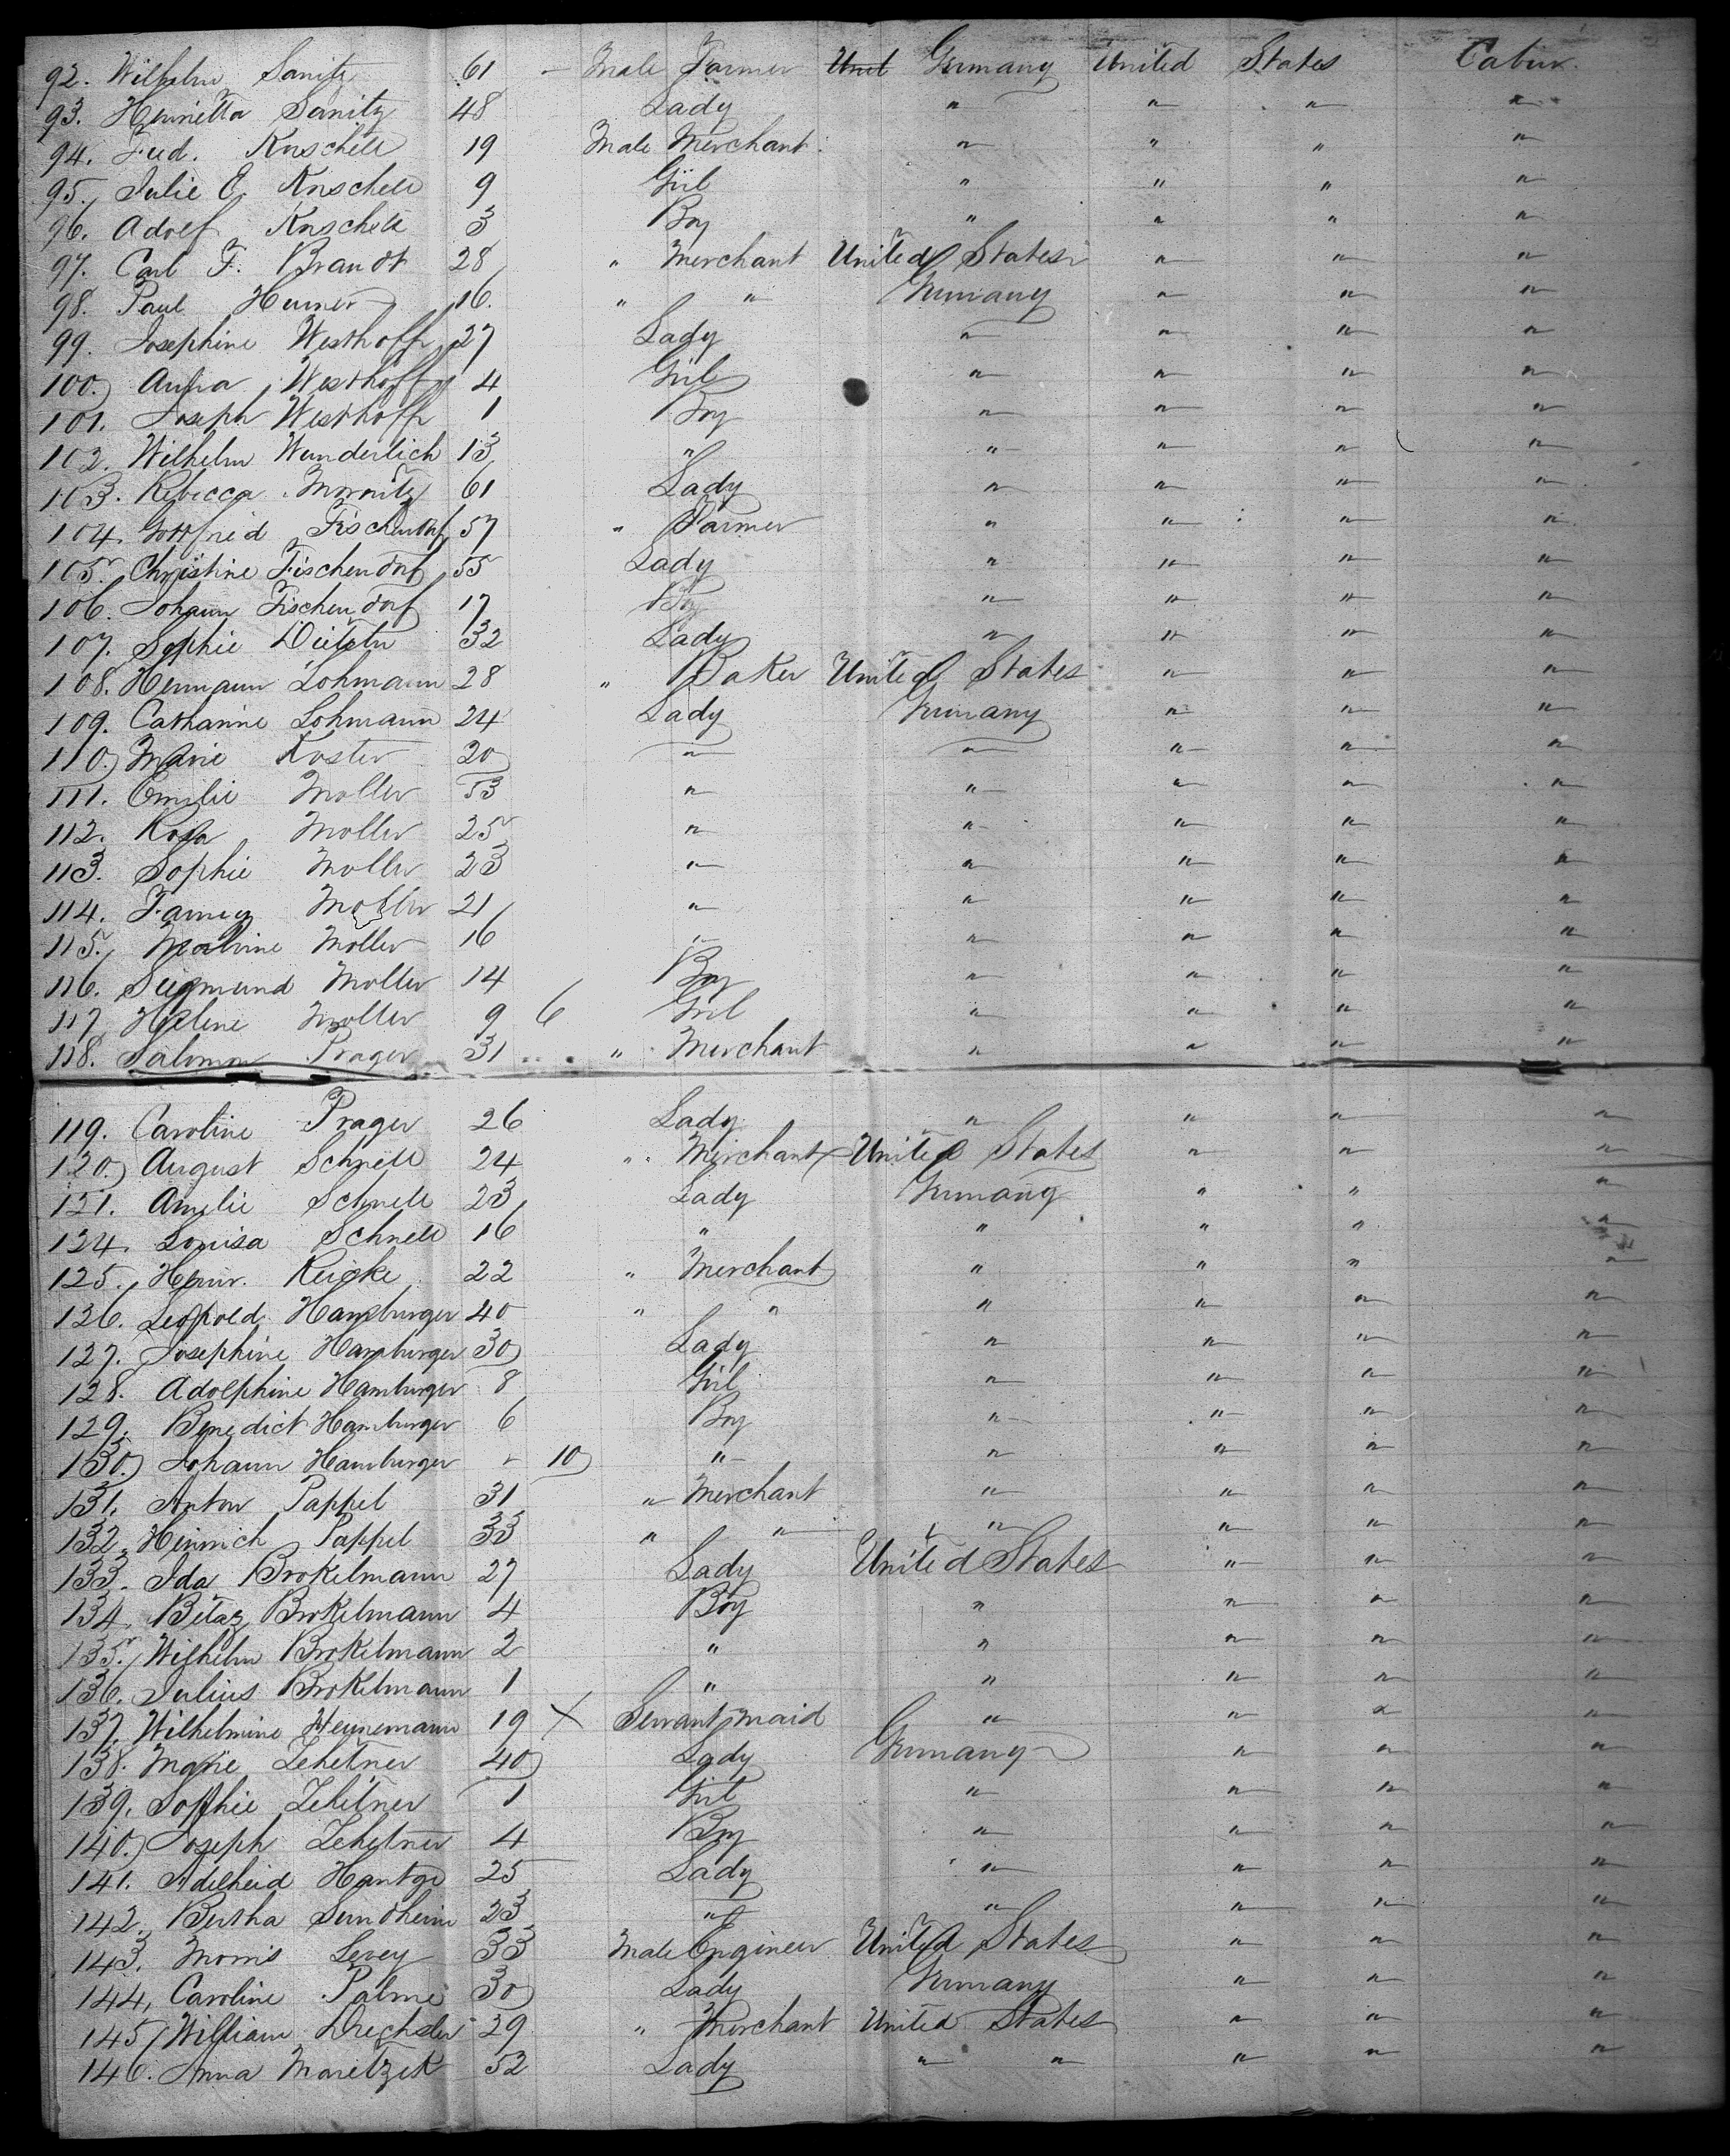 92. Wilhelm Sanitz 61 - Male Farmer Unit Germany United States Cabin.
93. Henrietta Sanitz 48 Lady " " " "
94. Fred. Knschell 19 Male Merchant. " " " "
95. Julie E. Knschell 9 Girl " " " "
96. Adolf Knschell 3 Boy " " " "
97. Carl F. Brandt 28 " Merchant United States " " "
98. Paul Hemer 16. " " Germany " " "
99. Josephine Westhoff 27 Lady " " " "
100. Anna Westhoff 4 Girl " " " "
101. Joseph Westhoff 1 Boy " " " "
102. Wilhelm Wunderlich 13 " " " " "
103. Rebecca Mornitz 61 Lady " " " "
104. Gottfried Fischendorf 57 " Farmer " " " "
105. Christine Fischendorf 55 Lady " " " "
106. Johann Fischendorf 17 Boy " " " "
107. Sophie 32 Lady " " " "
108. Hermann Lohmann 28 " Baker United States " " "
109. Catharine Lohmann 24 Lady Germany " " "
110. Marie Koster 20 " " " " "
111. Emilie Moller 53 " " " " "
112. Rosa Moller 25 " " " " "
113. Sophie Moller 23 " " " " "
114. Fanny Moller 21 " " " " "
115. Malvine Moller 16 " " " " "
116. Siegmund Moller 14 Boy " " " "
117. Helene Moller 9 6 Girl " " " "
118. Salomon Prager 31 " Merchant " " " "
119. Caroline Prager 26 Lady " " " "
120. August Schnell 24 " Merchant United States " " "
121. Amelie Schnell 23 Lady Germany " " "
124. Louisa Schnell 16 " " " " "
125. Heinr. Reicke 22 " Merchant " " " "
126. Leopold Hamburger 40 " " " " " "
127. Josephine Hamburger 30 Lady " " " "
128. Adolphine Hamburger 8 Girl " " " "
129. Benedict Hamburger 6 Boy " " " "
130. Johann Hamburger - 10 " " " " "
131. Anton Pappel 31 " Merchant " " " "
132. Heinrich Pappel 33 " " " " " "
133. Ida Brokelmann 27 Lady United States " " "
134. Brokelmann 4 Boy " " " "
135. Wilhelm Brokelmann 2 " " " " "
136. Julius Brokelmann 1 " " " " "
137. Wilhelmine Heinemann 19 X Servant maid " " " "
138. Marie Zehetner 40 Lady Germany " " "
139. Sophie Zehetner 1 Girl " " " "
140. Joseph Zehetner 4 Boy " " " "
141. Adelheid Hantge 25 Lady " " " "
142. Bertha Sundheim 23 " " " " "
143. Morris Levey 33 Male Engineer United States " " "
144. Caroline Palme 30 Lady Germany " " "
145. William Drechsler 29 " Merchant United States " " "
146. Anna Maretzek 52 Lady " " " " "